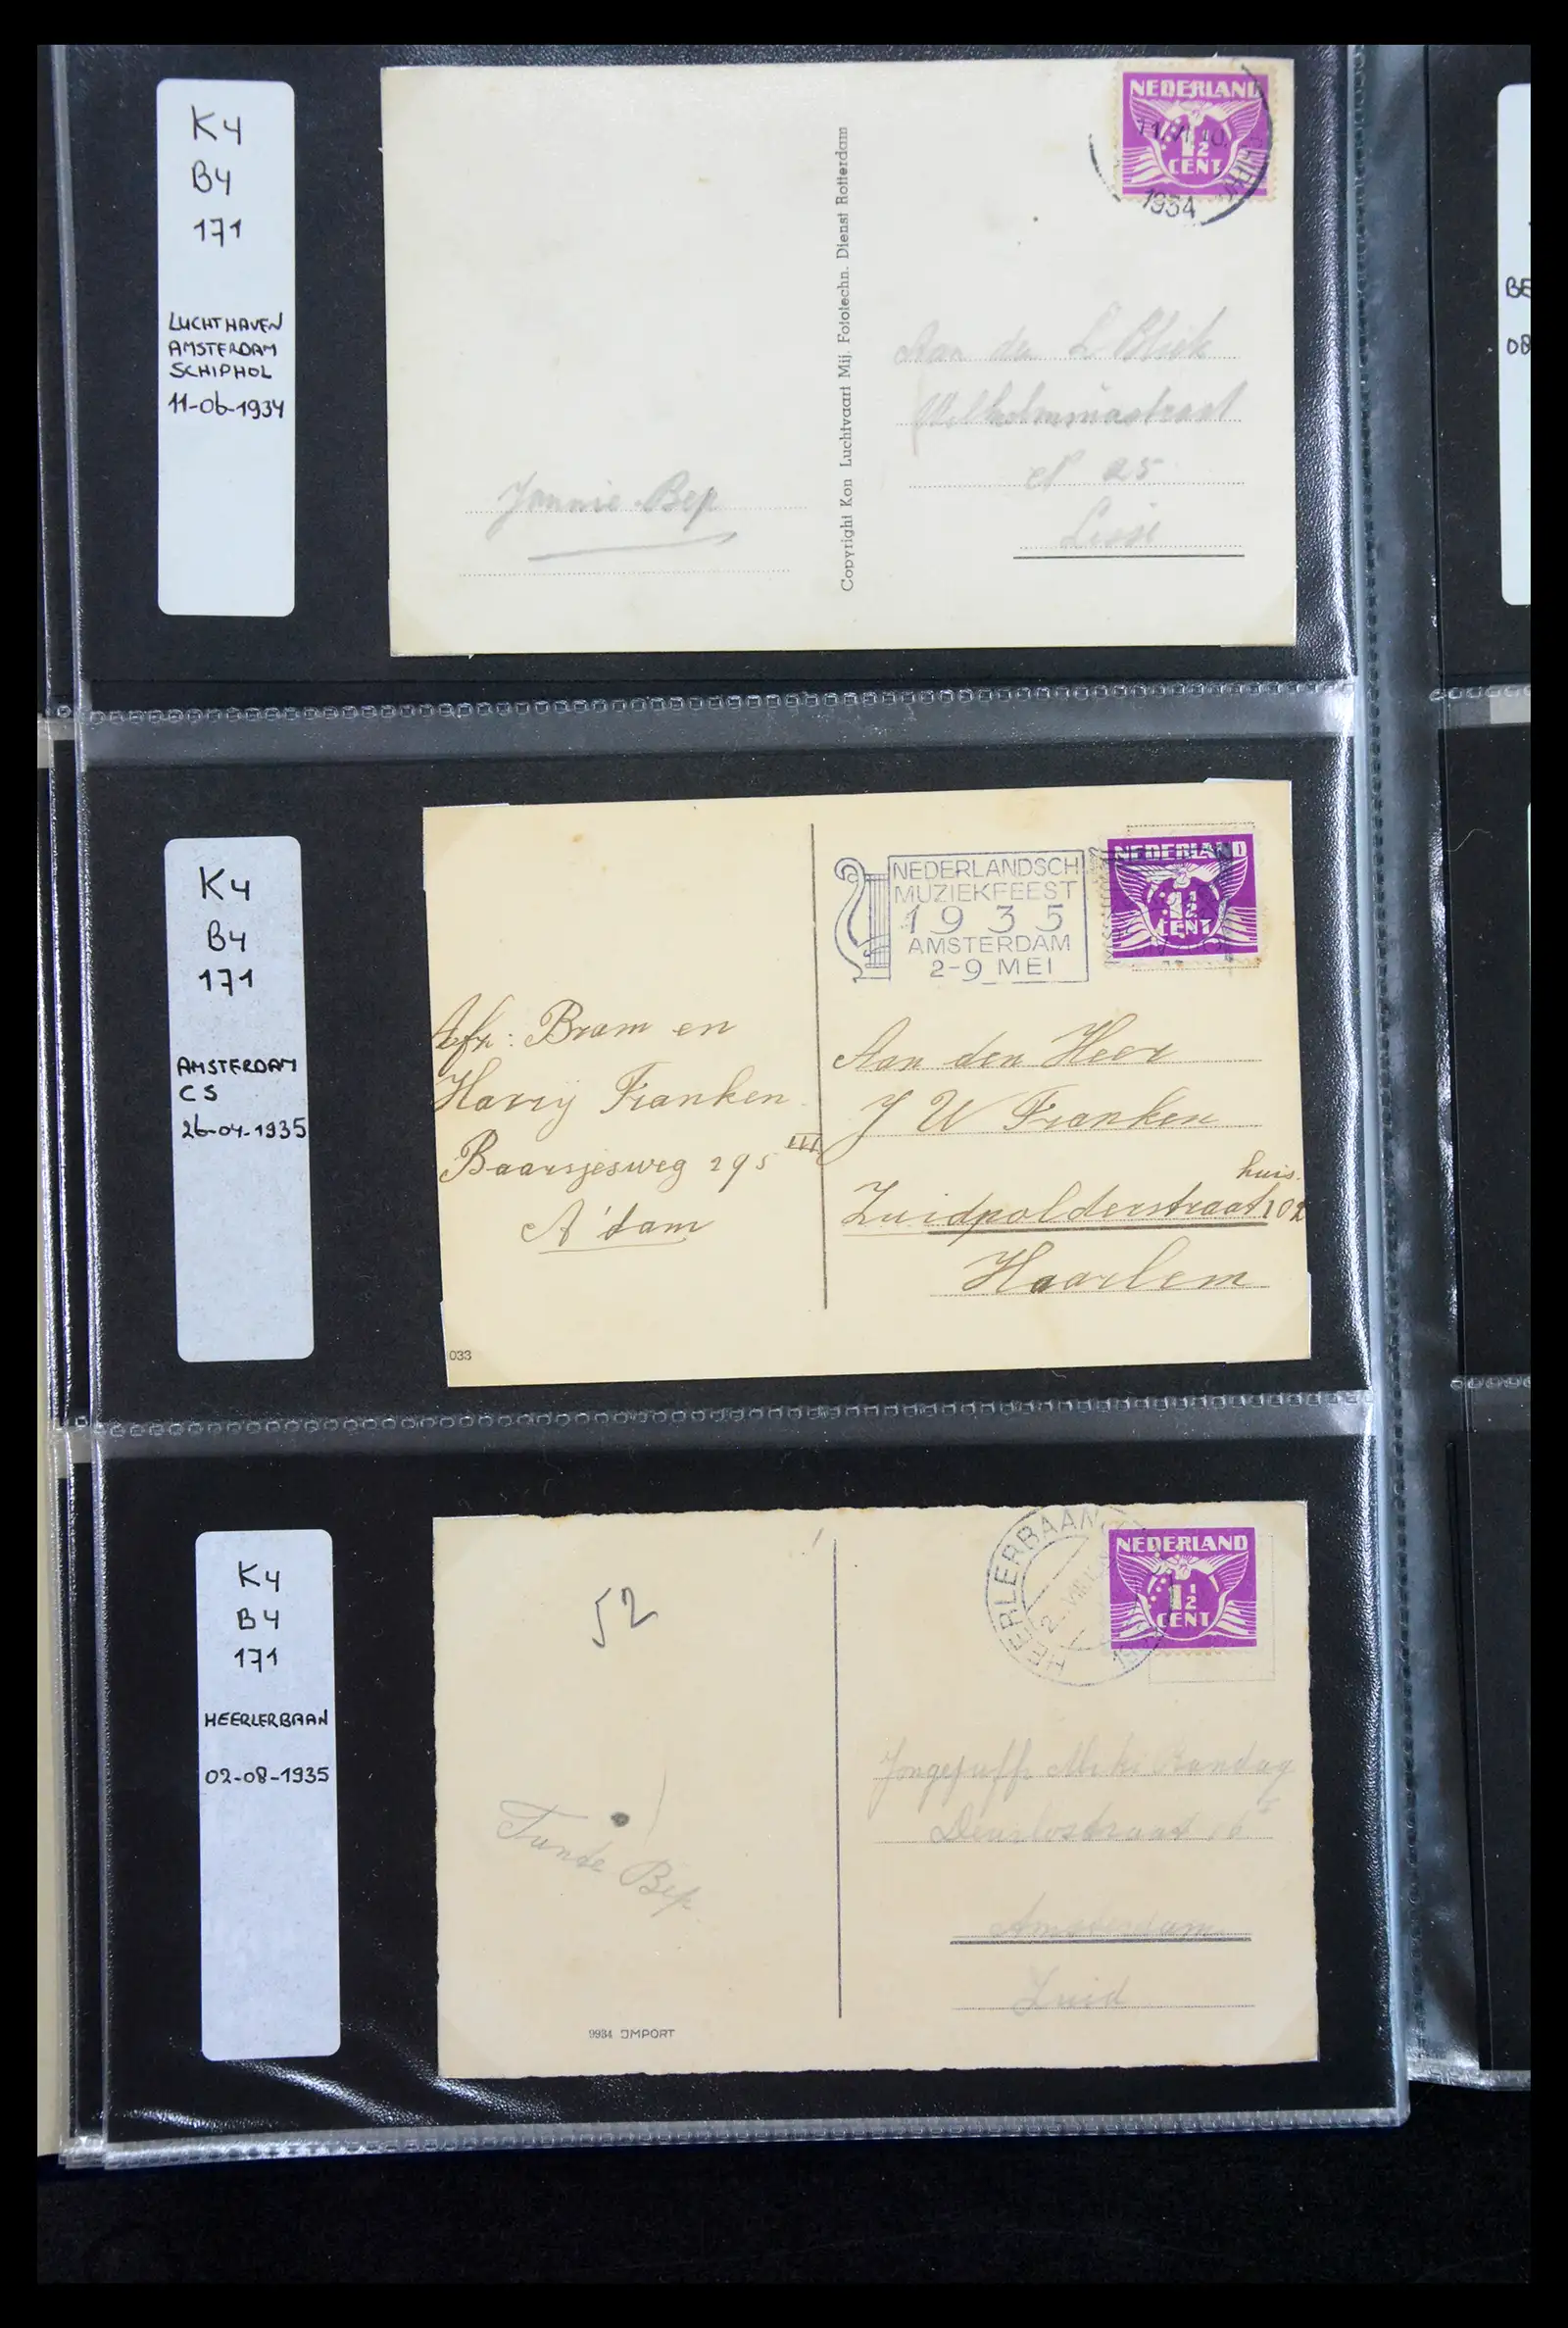 K4
B4
171
LUCHTHAVEN
AMSTERDAM
SCHIPHOL
11-06-1934
NEDERLAND
1½
CENT
1934
Copyright Kon Luchtvaart Mij. Fototechn. Dienst Rotterdam
Aan den
Wilhelminastraat
N 25
Lisse
Jannie Bep
BE
08
K4
B4
171
AMSTERDAM
CS
26-04-1935
NEDERLANDSCH
MUZIEKFEEST
1935
AMSTERDAM
2-9 MEI
NEDERLAND
1½
CENT
Afz: Bram en
Harry Franken
Baarsjesweg 295 III
A'dam
Aan den Heer
J W Franken
huis.
Zuidpolderstraat 102
Haarlem
033
K4
B4
171
HEERLERBAAN
02-08-1935
52
HEERLERBAAN
2. VIII
NEDERLAND
1½
CENT
Tante Bep
Amsterdam
Zuid
9934 IMPORT